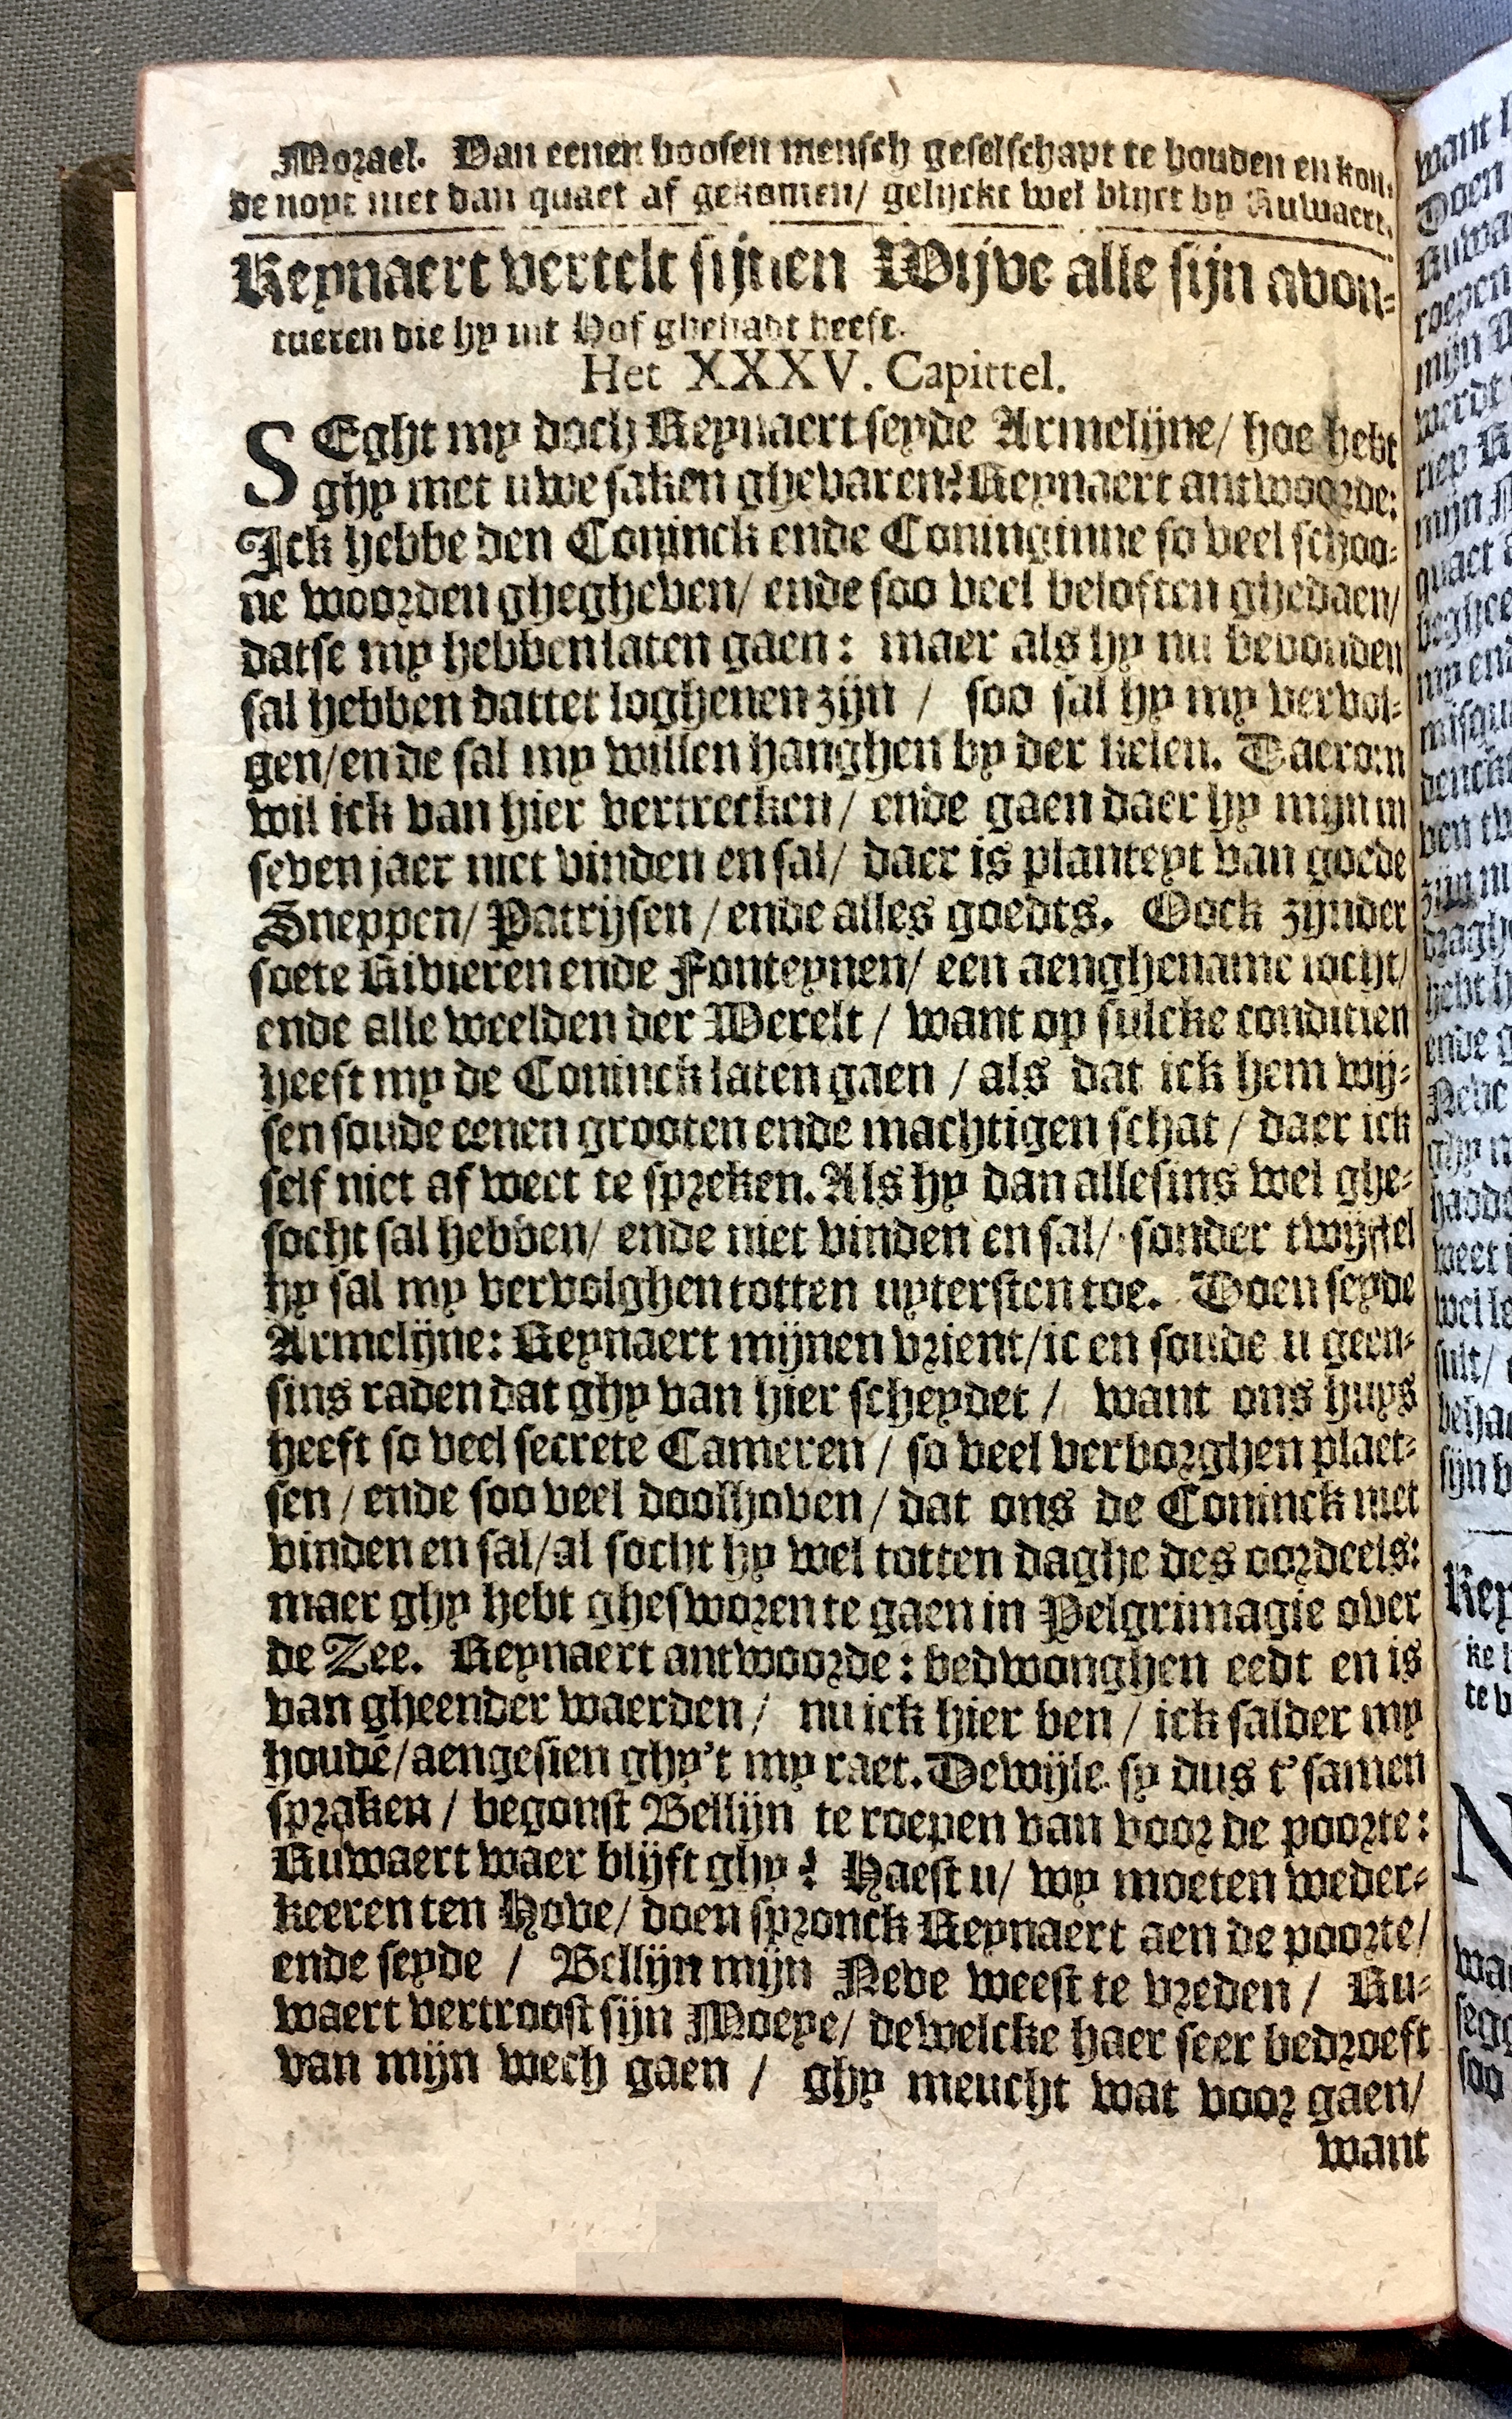 Morael. Van eenen boosen mensch geselschapt te houden en kon,
de noyt niet dan quaet af gekomen/ gelijckt wel blijct by Kuwaert.
Reynaert vertelt sijnen Wijve alle sijn avon-
tueren die hy int Hof ghehadt heeft.
Het XXXV. Capittel.
SEght my doch Reynaert seyde Armelijne/ hoe hebt
ghy met uwe saken ghevaren? Reynaert antwoorde:
Ick hebbe den Coninck ende Coninginne so veel schoo-
ne woorden ghegheven/ ende soo veel beloften ghedaen/
datse my hebben laten gaen: maer als hy nu bevonden
sal hebben dattet loghenen zijn / soo sal hy my vervol-
gen/ende sal my willen hanghen by der kelen. Daerom
wil ick van hier vertrecken/ ende gaen daer hy mijn in
seven jaer niet vinden en sal/ daer is planteyt van goede
Sneppen/ Patrijsen / ende alles goedts. Oock zijnder
soete Rivieren ende Fonteynen/ een aenghename locht/
ende alle weelden der Werelt / want op sulcke conditien
heeft my de Coninck laten gaen / als dat ick hem wij-
sen soude eenen grooten ende machtigen schat / daer ick
self niet af weet te spreken. Als hy dan allesins wel ghe-
socht sal hebben/ ende niet vinden en sal/ sonder twijffel
hy sal my vervolghen totten uytersten toe. Doen seyde
Armelijne: Reynaert mijnen vrient/ic en soude u geen-
sins raden dat ghy van hier scheydet / want ons huys
heeft so veel secrete Cameren / so veel verborghen plaet-
sen / ende soo veel doolhoven / dat ons de Coninck niet
vinden en sal/al socht hy wel totten daghe des oordeels:
maer ghy hebt ghesworen te gaen in Pelgrimagie over
de Zee. Reynaert antwoorde: bedwonghen eedt en is
van gheender waerden / nu ick hier ben / ick salder my
houdē/aengesien ghy't my raet. Dewijle sy dus t'samen
spraken / begonst Bellijn te roepen van voor de poorte:
Kuwaert waer blijft ghy? Haest u/ wy moeten weder-
keeren ten Hove/ doen spronck Reynaert aen de poorte/
ende seyde / Bellijn mijn Neve weest te vreden / Ku-
waert vertroost sijn Moeye/ dewelcke haer seer bedroeft
van mijn wech gaen / ghy meucht wat voor gaen/
want